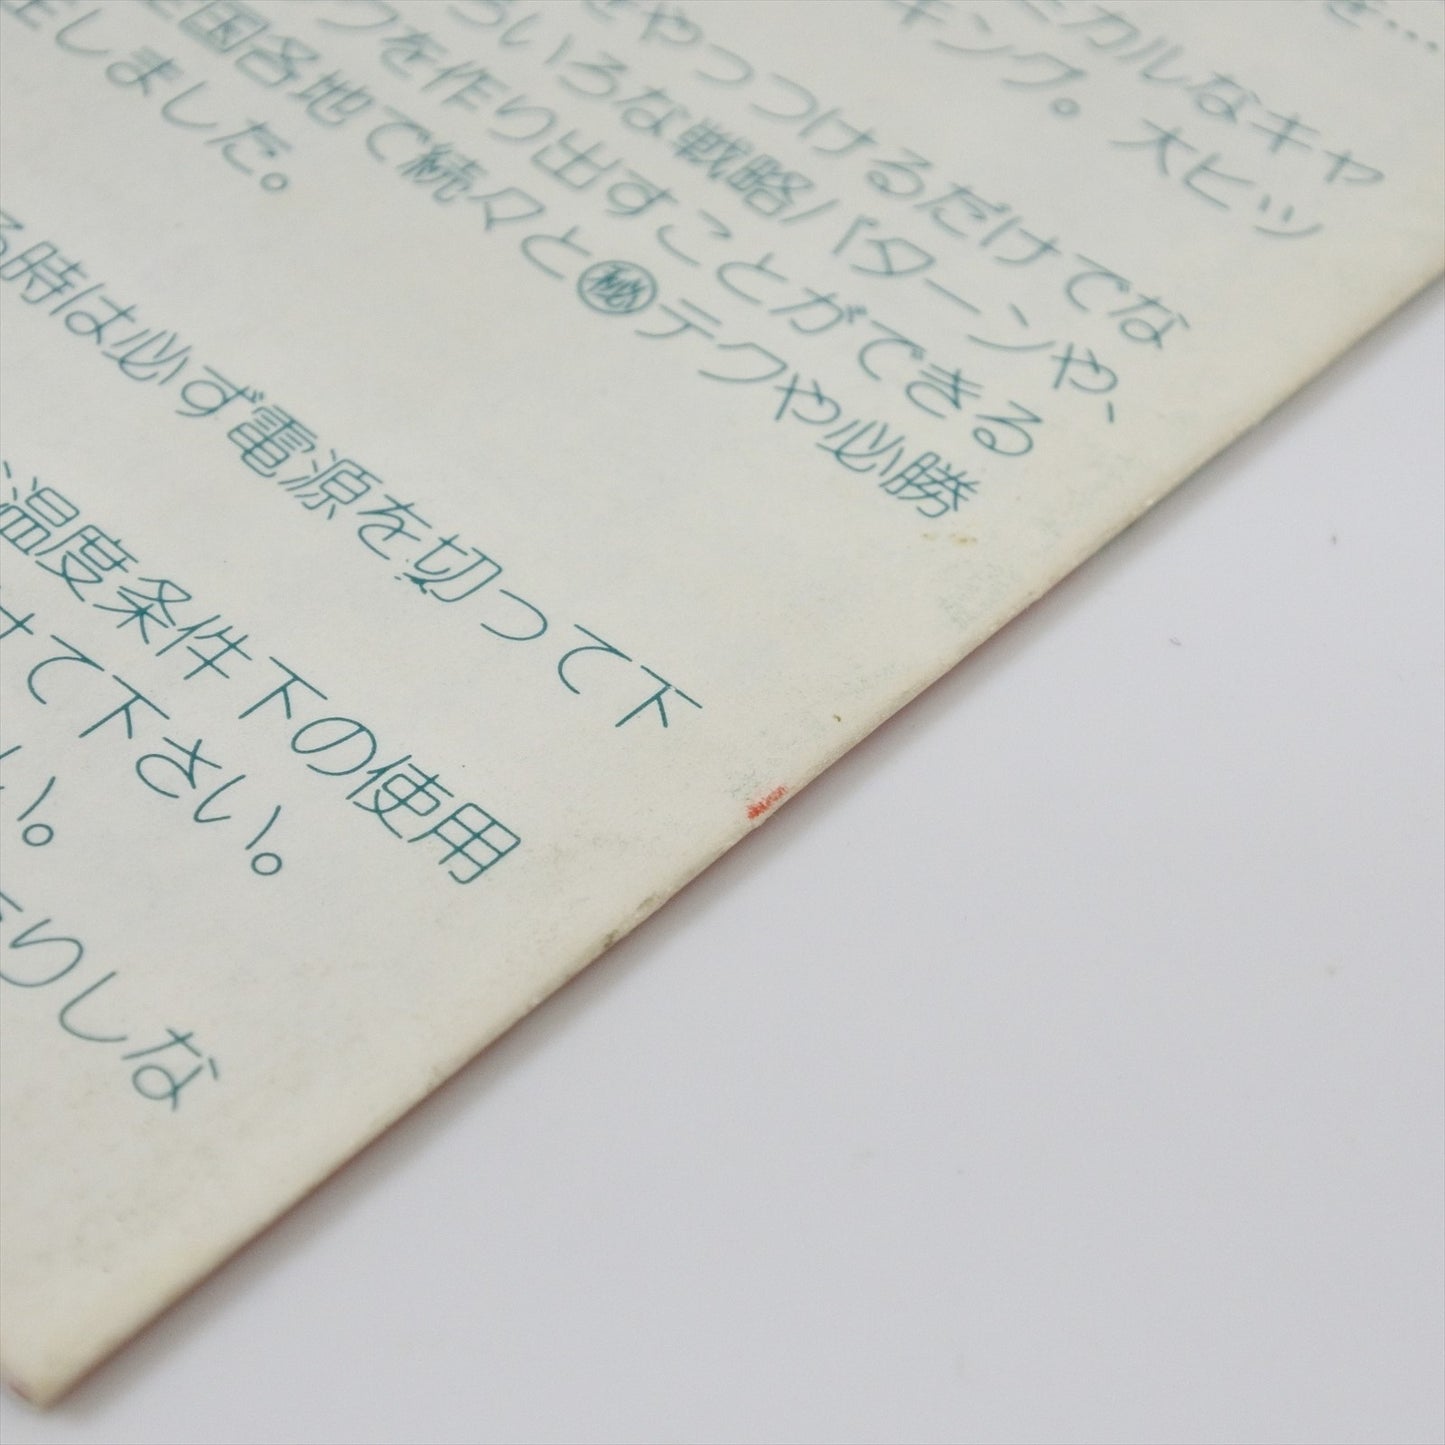 を…
ミカルなキャ
キング。大ヒッ
をやっつけるだけでな
ろいろな戦略パターンや、
クを作り出すことができる
全国各地で続々と㊙テクや必勝
生しました。
る時は必ず電源を切って下
温度条件下の使用
けて下さい。
い。
りしな